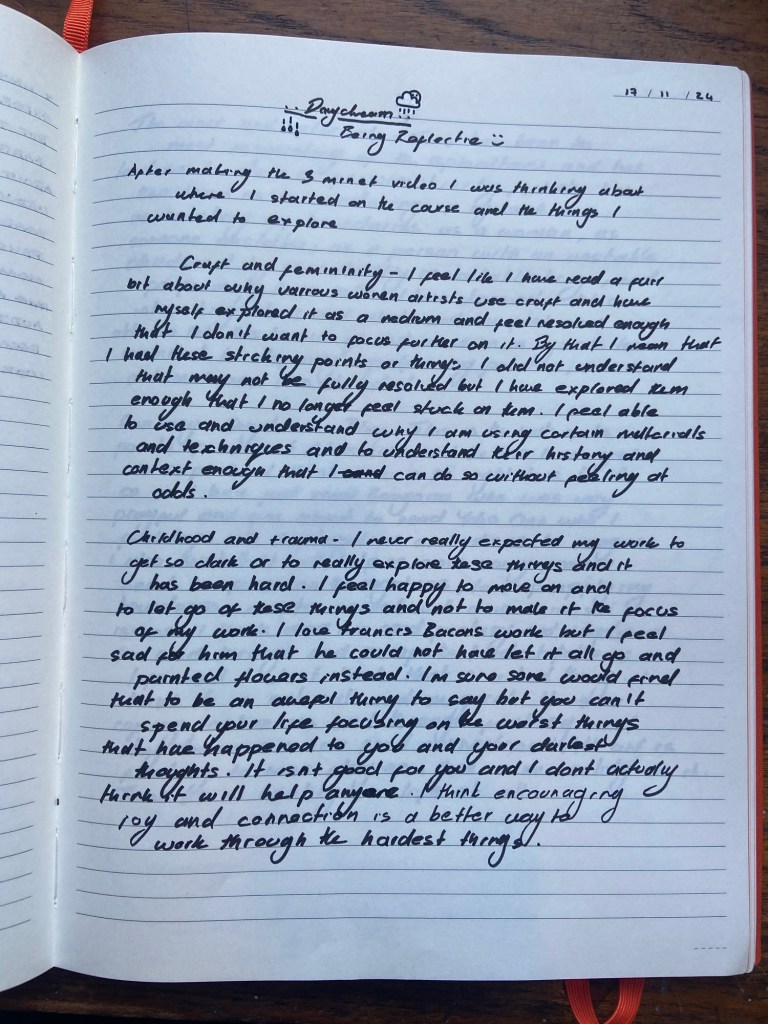 17 / 11 / 24
Daydream
Being Reflectie
After making the 3 minet video I was thinking about
where I started on the course and the things I
wanted to explore
Craft and femininity - I feel like I have read a furr
bit about why various women artists use craft and have
myself explored it as a medium and feel resolved enough
that I don't want to focus further on it. By that I mean that
I had these sticking points or things I did not understand
that may not be fully resolved but I have explored them
enough that I no longer feel stuck on them. I feel able
to use and understand why I am using certain materials
and techniques and to understand their history and
context enough that I can do so without feeling at
odds.
Childhood and trauma - I never really expected my work to
get so dark or to really explore these things and it
has been hard. I feel happy to move on and
to let go of these things and not to make it the focus
of my work. I love Francis Bacons work but I feel
sad for him that he could not have let it all go and
painted flowers instead. I'm sure some would find
that to be an aweful thing to say but you can't
spend your life focusing on the worst things
that hae happened to you and your darkest
thoughts. It isnt good for you and I dont actually
think it will help anyone. I think encouraging
joy and connection is a better way to
work through the hardest things.